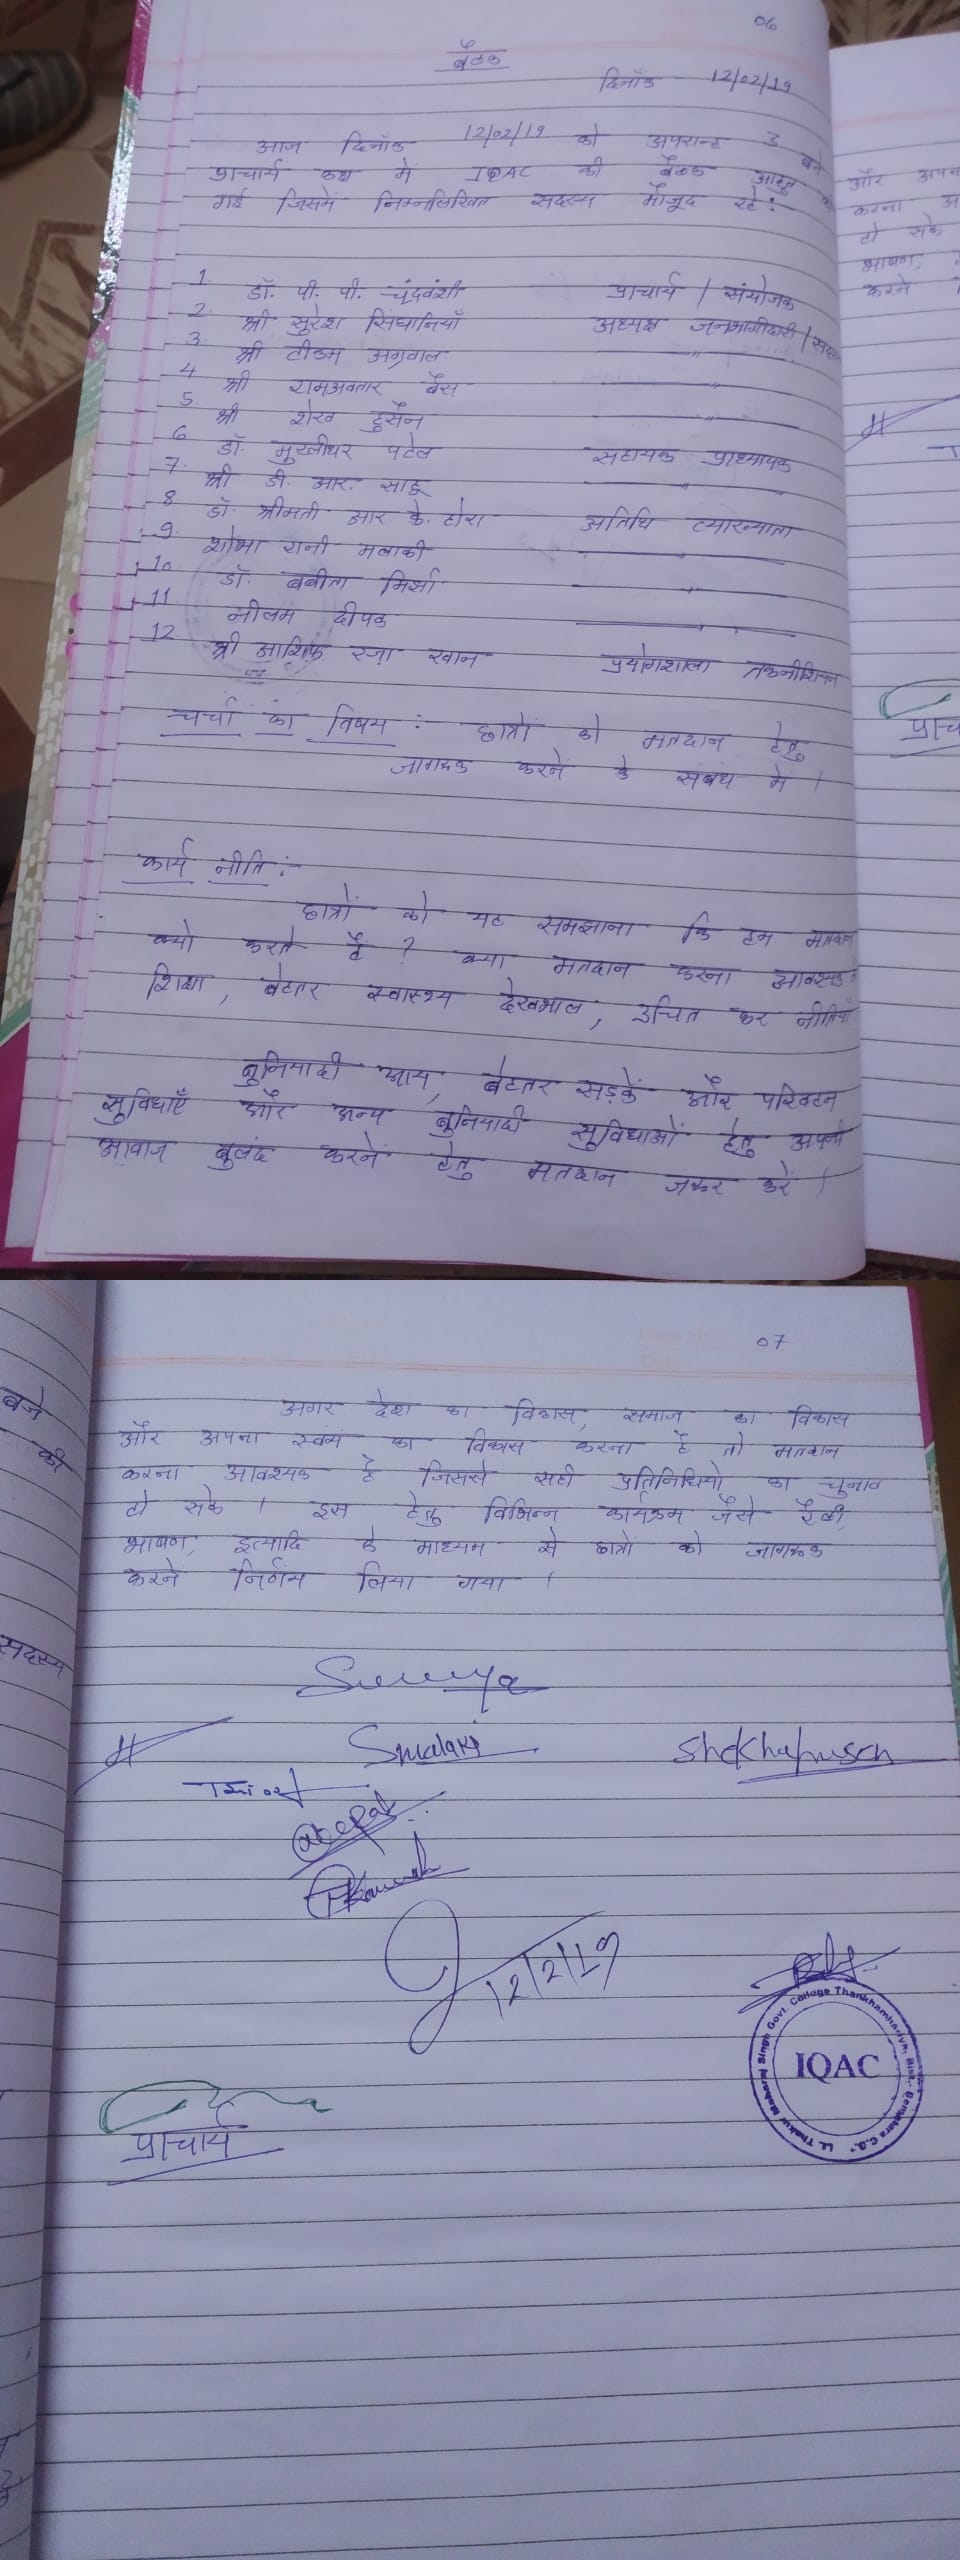 06
बैठक
दिनाँक 12/02/19
आज दिनाँक 12/02/19 को अपरान्ह 3 बजे
प्राचार्य कक्ष में IQAC की बैठक आहुत की
गई जिसमें निम्नलिखित सदस्य मौजूद रहे :
1. डॉ. पी. पी. चंद्रवंशी प्राचार्य / संयोजक
2. श्री सुरेश सिंघानियाँ अध्यक्ष जनभागीदारी / सदस्य
3. श्री टीकम अग्रवाल — " —
4. श्री रामअवतार बैस — " —
5. श्री शेख हुसैन — " —
6. डॉ. मुरलीधर पटेल सहायक प्राध्यापक
7. श्री डी. आर. साहू — " —
8. डॉ. श्रीमती आर. के. होरा अतिथि व्याख्याता
9. शोभा रानी मलाकी — " —
10. डॉ. बबीता मिर्झा — " —
11. नीलम दीपक — " —
12. श्री आशिफ रज़ा खान प्रयोगशाला तकनीशियन
चर्चा का विषय : छात्रों को मतदान हेतु
जागरूक करने के संबंध में ।
कार्य नीति :-
छात्रों को यह समझाना कि हम मतदान
क्यो करते हैं ? क्या मतदान करना आवश्यक है
शिक्षा, बेहतर स्वास्थ्य देखभाल, उचित कर नीतियाँ
बुनियादी आय, बेहतर सड़कें और परिवहन
सुविधाएँ और अन्य बुनियादी सुविधाओं हेतु अपनी
आवाज बुलंद करनें हेतु मतदान जरूर करें ।
और अपना
करना आ
हो सके
भाषण,
करने
प्राच
07
अगर देश का विकास, समाज का विकास
और अपना स्वयं का विकास करना है तो मतदान
करना आवश्यक है जिससे सही प्रतिनिधियो का चुनाव
हो सके । इस हेतु विभिन्न कार्यक्रम जैसे रैली,
भाषण, इत्यादि के माध्यम से छात्रों को जागरूक
करने निर्णय लिया गया ।
बजे
की
सदस्य
Smalaki Shekhahusen
Deepak
12/2/19
प्राचार्य
IQAC
Lt. Thakur Maharaj Singh Govt. College Thankhamhariya, Dist.- Bemetara C.G.